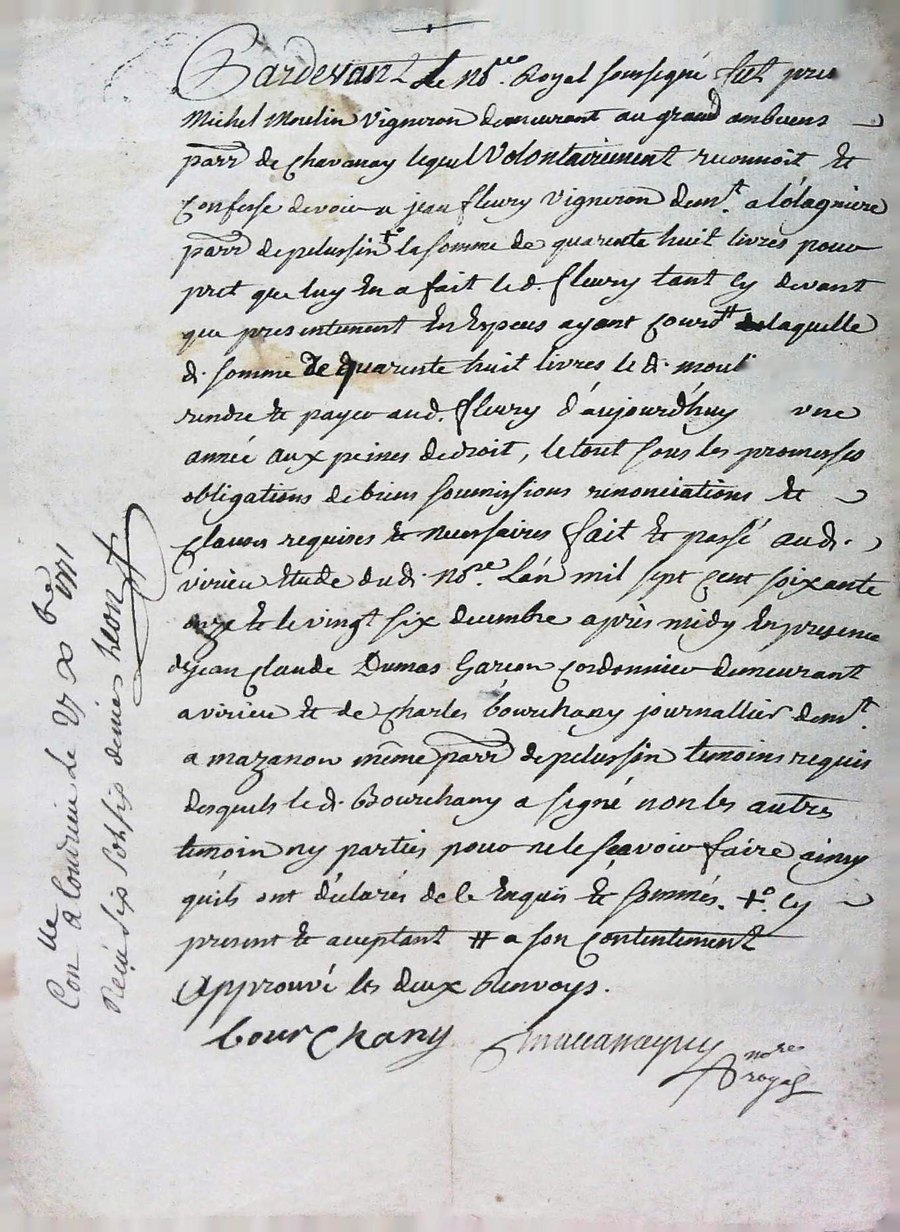 Pardevant Le No.re Royal soussigné fut pnt
Michel Moulin vigneron demeurant au grand
parr de chavanay lequel volontairement reconnoit Et
Confesse devoir a jean fleury vigneron demt. a
parr de pelussin +° la somme de quarente huit livres pour
pret que luy En a fait led. fleury tant cy devant
que presentement En Especes ayant cours # laquelle
d. somme de quarente huit livres le d. moul
rendre Et payer aud. fleury d'aujourd'huy une
année aux peines de droit, le tout sous les promesses
obligations de biens soumissions renonciations Et
Clauses requises Et necessaires fait Et passé aud.
virieu Etude dud. No.re L'an mil sept Cent soixante
onze Et le vingt six decembre après midy En presence
de jean Claude Dumas Garcon Cordonnier demeurant
a virieu Et de Charles bourchany journallier demt.
a mazanon même parr de pelussin temoins requis
desquels le d. Bourchany a signé non les autres
temoin ny parties pour ne le sçavoir faire ainsy
qu'ils ont déclarés de ce Enquis Et sommés. +° Cy
present Et acceptant # a son Contentement
Approuvé les deux Renvoys.
bourchany
nores
royal
Con.lle à Condrieu le 1771
Reçu six sols six deniers